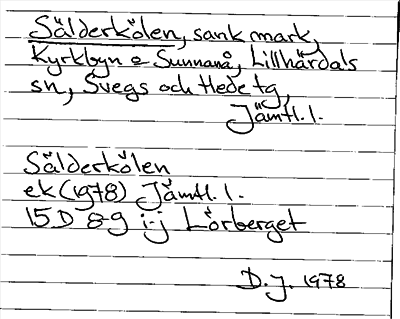 Sälderkölen, sank mark,
Kyrkbyn o Sunnanå, Lillhärdals
sn, Svegs och Hede tg,
Jämtl. l.
Sälderkölen
ek (1978) Jämtl. l.
15D 8-9 i-j Lörberget
D.J. 1978